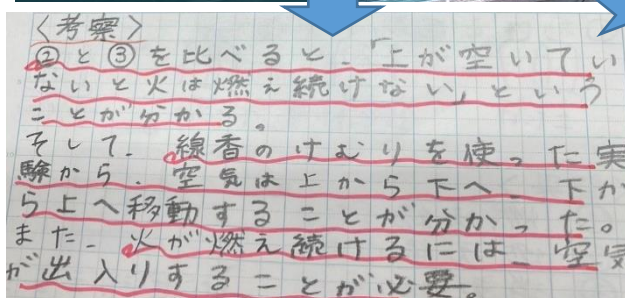 〈考察〉
②と③を比べると、「上が空いてい
ないと火は燃え続けない」という
ことが分かる。
そして、線香のけむりを使った実
験から、空気は上から下へ、下か
ら上へ移動することが分かった。
また、火が燃え続けるには、空気
が出入りすることが必要。